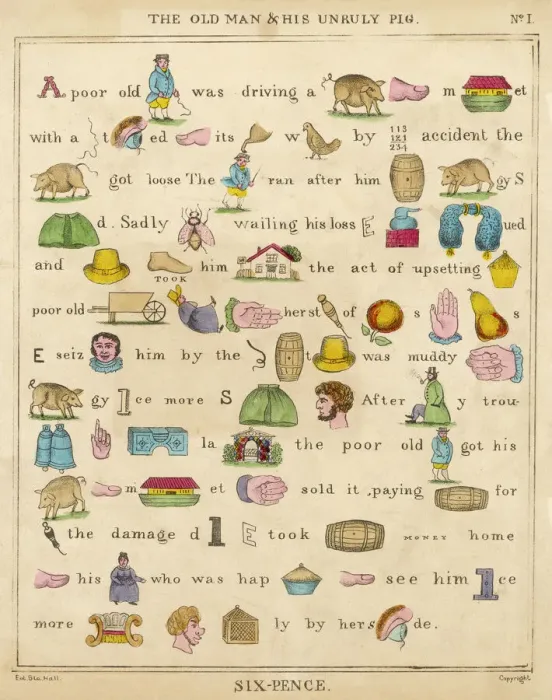 THE OLD MAN & HIS UNRULY PIG. No. I.
A poor old was driving a m et
with a t ed its w by 113 121 234 accident the
got loose The ran after him gy S
d. Sadly wailing his loss E ued
and TOOK him the act of upsetting
poor old herst of s s
E seiz him by the t was muddy
gy 1ce more S After y trou-
la the poor old got his
m et sold it ,paying for
the damage d 1 E took MONEY home
his who was hap see him 1ce
more ly by hers de.
Ent. Sta. Hall. Copyright.
SIX-PENCE.